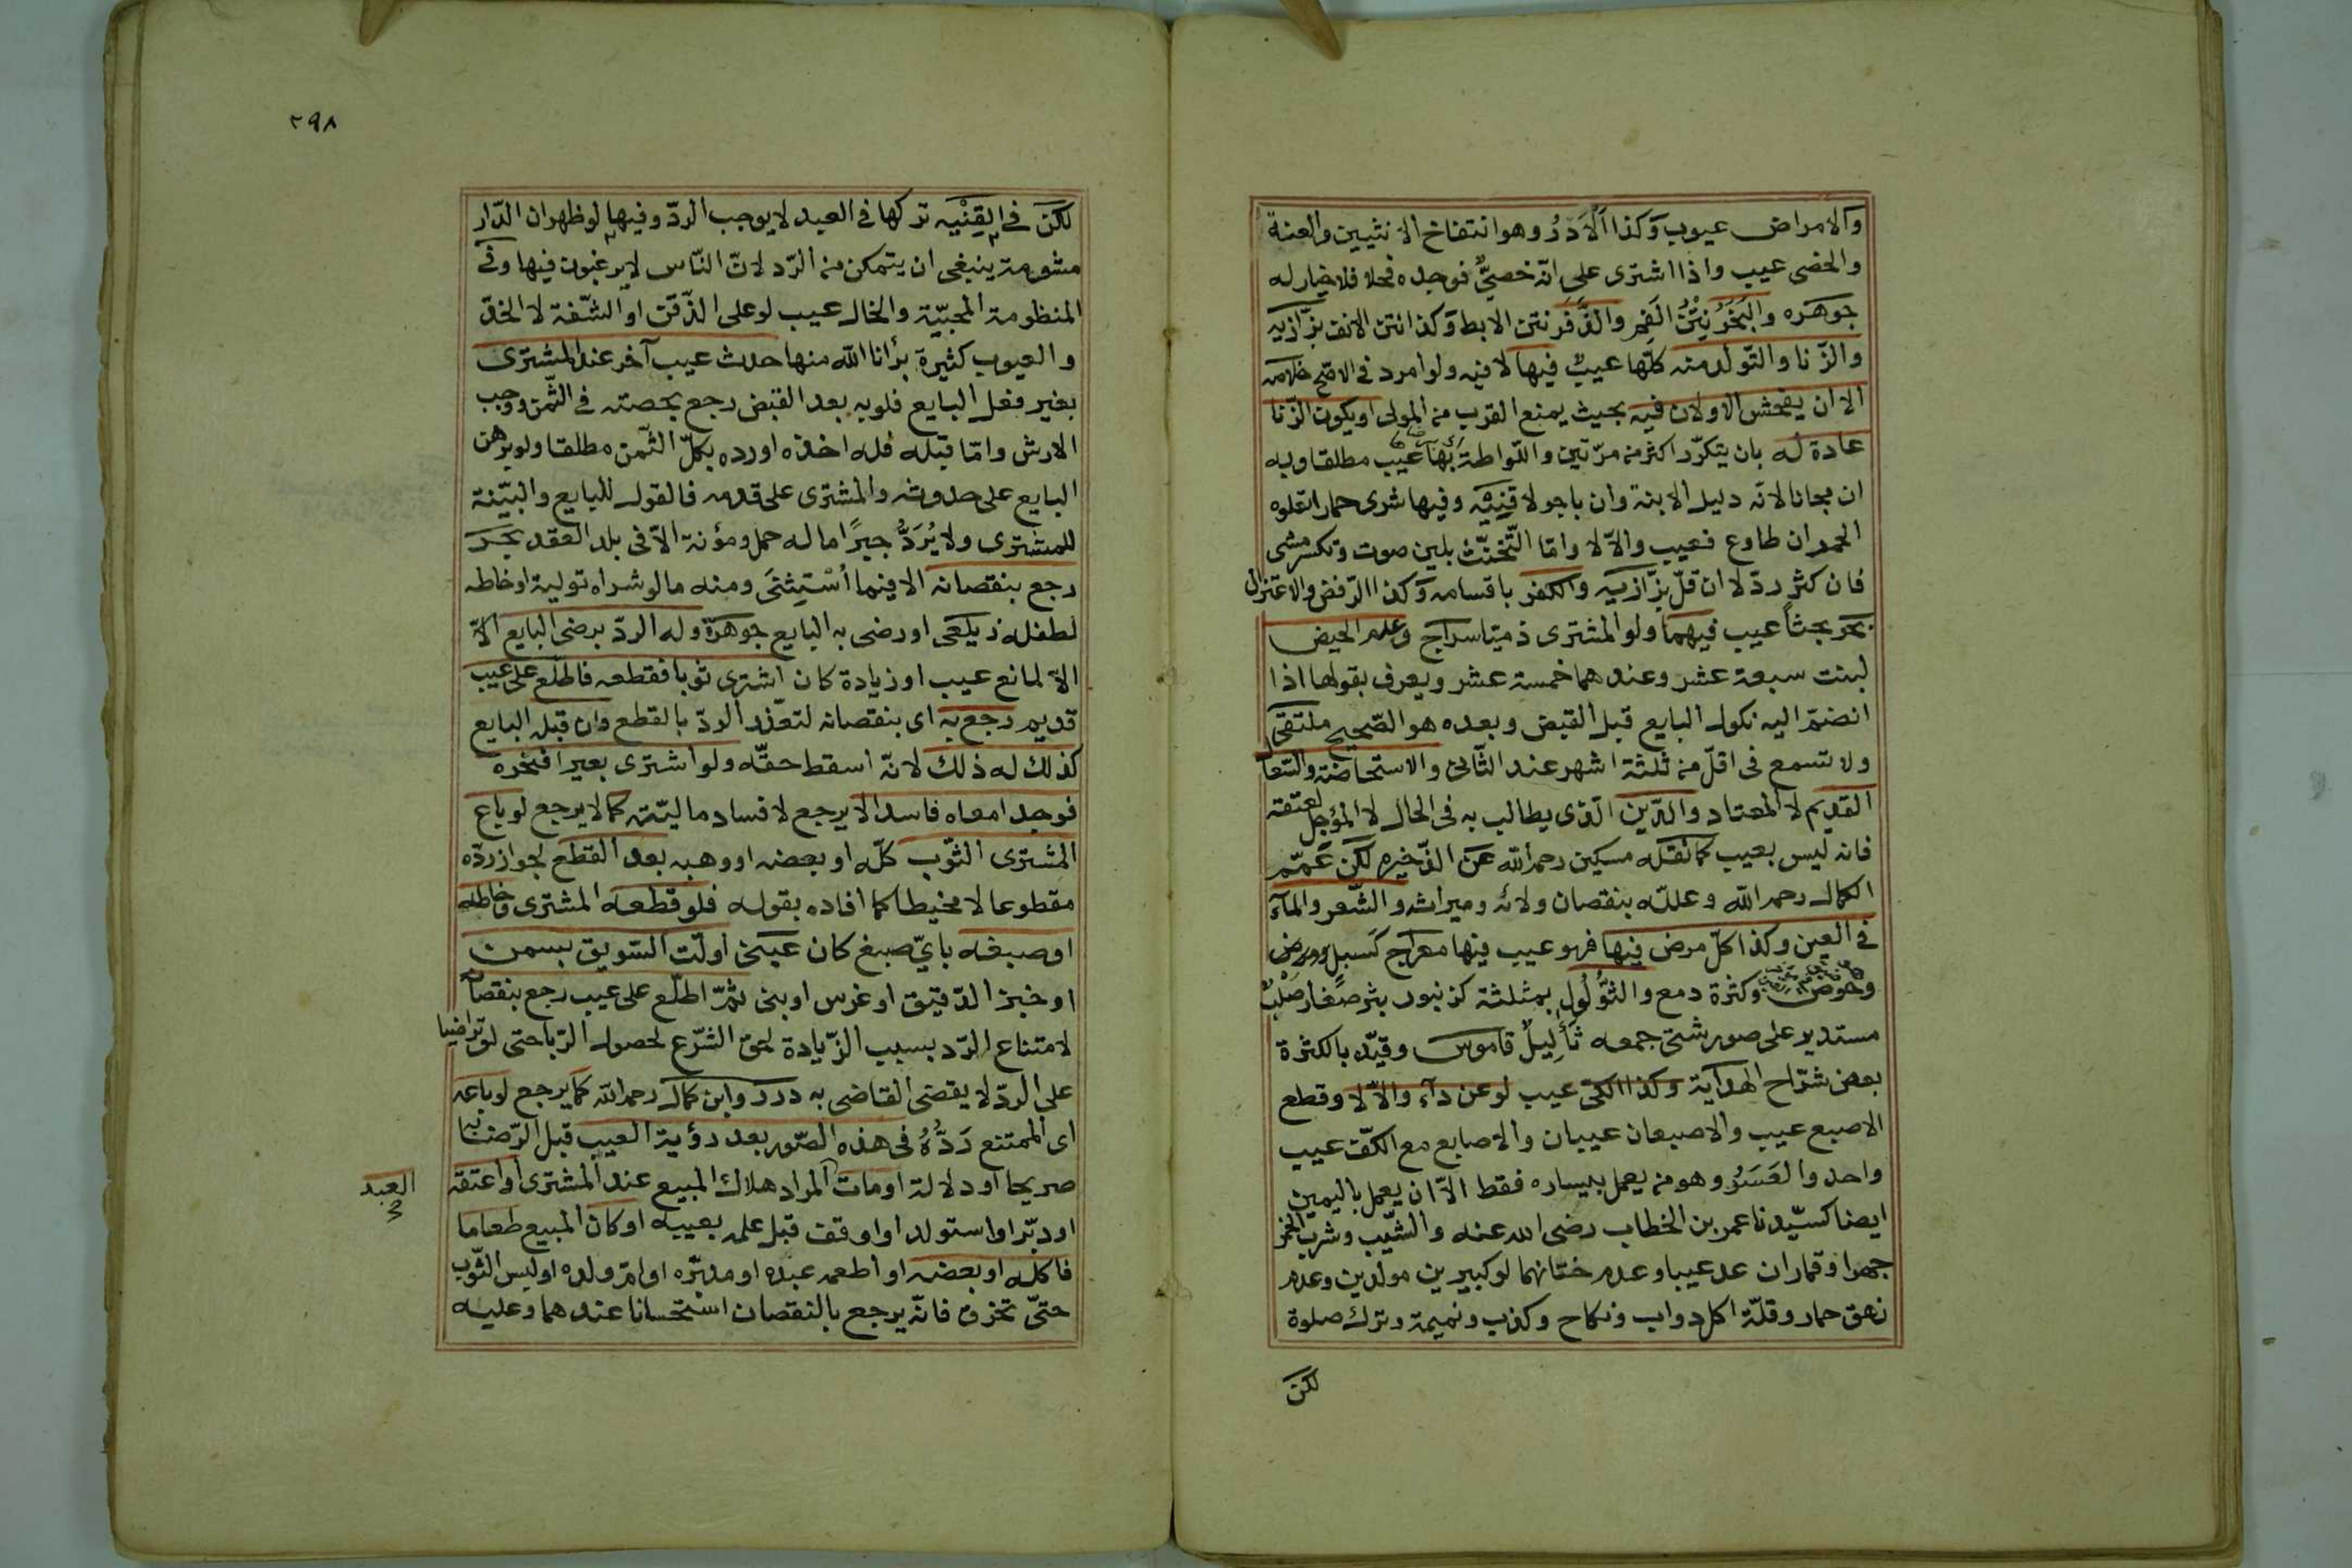 والامراض عيوب وكذا الَادَرُ وهو انتفاخ الانثيين والعنة
والخصى عيب واذا اشترى على انّه خصيٌّ فوجده فحلا فلا خيار له
جوهره والبَخَرُ نَتْنُ الفمِ والذَّفَر نتن الابط وكذا نتن الانف بزّازيه
والزّنا والتّولد منه كلّها عيبٌ فيها لا فيه ولو امرد فى الاصّح خلاصه
الا ان يفحش الاولان فيه بحيث يمنع القرب من المولى او يكون الزّنا
عادة له بان يتكرّر اكثر من مرّتين واللّواطة بها عيب مطلقا وبه
ان مجانا لانّه دليل الابنة وان باجر لا قنيه وفيها شرى حمارا تعلوه
الحمر ان طاوع فعيب والّا لا وامّا التّخنّث بلين صوت وتكسر مشى
فان كثر ردّ لا ان قلّ بزّازيه والكفر باقسامه وكذا الرّفض والاعتزال
بحر بحثاً عيب فيهما ولو المشترى ذميّا سراج وعدم الحيض
لبنت سبعة عشر وعندهما خمسة عشر ويعرف بقولها اذا
انضمّ اليه نكول البايع قبل القبض وبعده هو الصّحيح ملتقى
ولا تسمع فى اقلّ من ثلثة اشهر عند الثّانى والاستحاضة والسّعال
القديم لا المعتاد والدّين الّذى يطالب به فى الحال لا المؤجل لعتقه
فانه ليس بعيب كما نقله مسكين رحمه الله عن الذّخيره لكن عمّم
الكمال رحمه الله وعللّه بنقصان ولائه وميراثه والشّعر والمآء
فى العين وكذا كلّ مرض فيها فهو عيب فيها معراج كسبل ومرض
وحوض وكثرة دمع والثُّؤْلُول بمثلثة كزنبور بثر صغار صلب
مستدير على صور شتى جمعه ثآليل قاموس وقيّده بالكثرة
بعض شرّاح الهداية وكذا الكىّ عيب لو عن دآء والّا لا وقطع
الاصبع عيب والاصبعان عيبان والاصابع مع الكفّ عيب
واحد والعَسَرُ وهو من يعمل بيساره فقط الّا ان يعمل باليمين
ايضا كسيّدنا عمر بن الخطاب رضى الله عنه والشّيب وشرب الخمر
جهرا وقمار ان عد عيبا وعدم ختانهما لو كبيرين مولدين وعدم
نهق حمار وقلّة اكل دواب ونكاح وكذب ونميمة وترك صلوة
لكن
٢٩٨
لكن فى القِنْيه تركها فى العبد لا يوجب الردّ وفيها لو ظهر ان الدّار
مشومة ينبغى ان يتمكن من الرّد لانّ النّاس لا يرغبون فيها وفى
المنظومة المحبيّة والخال عيب لو على الذّقن او الشّفة لا الخدّ
والعيوب كثيرة برأنا الله منها حدث عيب آخر عند المشترى
بغير فعل البايع فلو به بعد القبض رجع بحصته فى الثّمن ووجب
الارش وامّا قبله فله اخذه او رده بكلّ الثّمن مطلقا ولو برهن
البايع على حدوثه والمشترى على قدمه فالقول للبايع والبيّنة
للمشترى ولا يُرَدُّ جبرًا ما له حمل ومؤنة الّا فى بلد العقد بحر
رجع بنقصانه الا فيما اُسْتِثْنَى ومنه ما لو شراه تولية او خاطه
لطفله زيلعى او رضى به البايع جوهرة وله الردّ برضى البايع الّا
الّا لمانع عيب او زيادة كان اشترى ثوبا فقطعه فاطلّع على عيب
قديم رجع به اى بنقصانه لتعذر الردّ بالقطع وان قبله البايع
كذلك له ذلك لانّه اسقط حقّه ولو اشترى بعيرا فنحره
فوجد امعاه فاسد الا يرجع لافساد ماليّته كما لا يرجع لو باع
المشترى الثّوب كلّه او بعضه او وهبه بعد القطع لجواز ردّه
مقطوعا لا مخيطا كما افاده بقوله فلو قطعه المشترى وخاطه
او صبغه باىّ صبغ كان عينى او لتّ السّويق بسمن
او خبز الدّقيق او غرس او بنى ثمّ اطلّع على عيب رجع بنقصانه
لامتناع الرّد بسبب الزّيادة لحق الشّرع لحصول الرّبا حتى لو تراضيا
على الردّ لا يقضى القاضى به درر وابن كمال رحمه الله كما يرجع لو باعه
اى الممتنع رَدُّهُ فى هذه الصّور بعد رؤية العيب قبل الرّضا به
صريحا او دلالة او مات المراد هلاك المبيع عند المشترى او اعتقه
العبد
او دبّر او استولد او اوقف قبل علمه بعيبه او كان المبيع طعاما
فاكله او بعضه او اطعمه عبده او مدبّره او امّ ولده او لبس الثّوب
حتىّ تخرق فانّه يرجع بالنقصان استحسانا عندهما وعليه